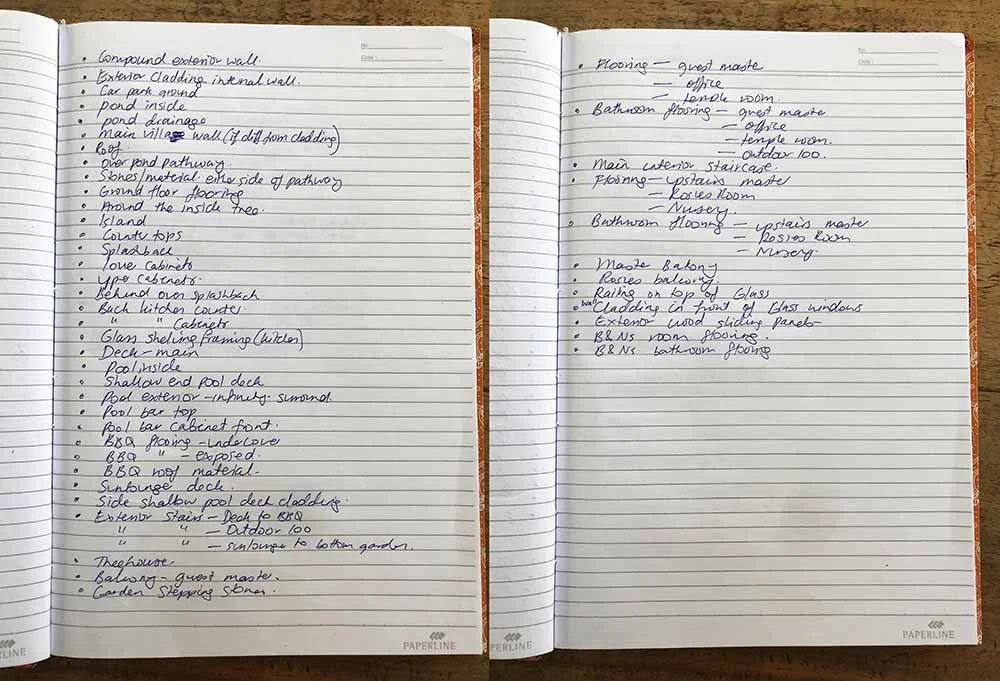 No
Date :
• Compound exterior wall.
• Exterior Cladding internal wall.
• Car park ground
• pond inside
• pond drainage
• Main villa wall (if diff from cladding)
• Roof.
• over pond pathway.
• Stones/material either side of pathway
• Ground floor flooring
• Around the inside tree.
• Island
• Counter tops
• Splashback
• lower Cabinets
• upper Cabinets.
• Behind oven splashback
• Back kitchen counter.
• " " Cabinets
• Glass shelving framing (kitchen)
• Deck - main
• Pool inside
• Shallow end pool deck
• Pool exterior - infinity surround.
• Pool bar top
• Pool bar cabinet front.
• BBQ flooring - undercover
• BBQ " - exposed.
• BBQ roof material.
• Sunlounge deck.
• Side shallow pool deck cladding.
• Exterior Stairs - Deck to BBQ
" " - Outdoor loo
" " - sunlounge to bottom garden.
• Treehouse.
• Balcony - guest master.
• Garden Stepping Stones.
PAPERLINE
PERLINE
No
Date :
• Flooring - guest master
- office
- temple room.
• Bathroom flooring - guest master
- office
- temple room.
- Outdoor loo.
• Main interior staircase.
• Flooring - upstairs master
- Rosies Room
- Nursery.
• Bathroom flooring - upstairs master
- Rosies Room
- Nursery.
• Master Balcony
• Rosies balcony.
• Railing on top of Glass
• Wall Cladding in front of Glass windows
• Exterior wood sliding panels
• B&Ns room flooring.
• B&Ns bathroom flooring
PAPERLINE
PERLINE